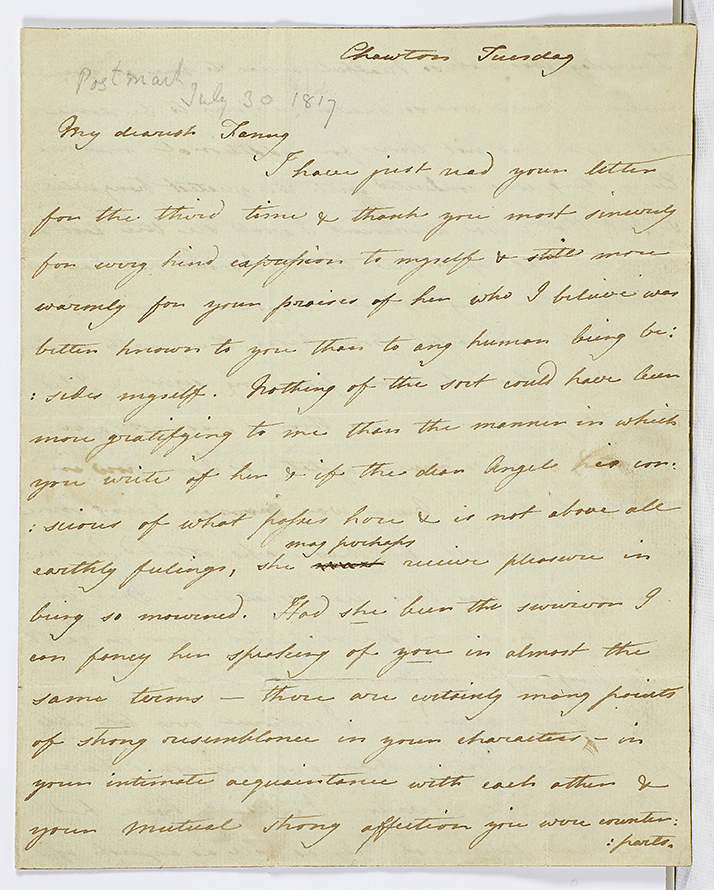 Chawton Tuesday
Postmark
July 30 1817
My dearest Fanny
I have just read your letter
for the third time & thank you most sincerely
for every kind expression to myself & still more
warmly for your praises of her who I believe was
better known to you than to any human being be:
:sides myself. Nothing of the sort could have been
more gratifying to me than the manner in which
you write of her & if the dear Angel is con:
:scious of what passes here & is not above all
earthly feelings, she may perhaps receive pleasure in
being so mourned. Had she been the survivor I
can fancy her speaking of you in almost the
same terms — there are certainly many points
of strong resemblance in your characters — in
your intimate acquaintance with each other &
your mutual strong affection you were counter:
:parts.